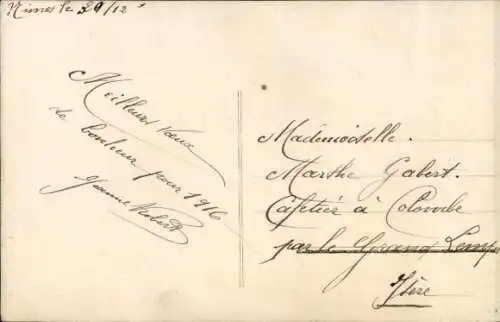 Nimes le 29/12
Meilleurs Vœux
de bonheur pour 1916
Jeanne Robert
Mademoiselle
Marthe Gabert
Cafetier à Colombe
par Le Grand Lemps
Isère